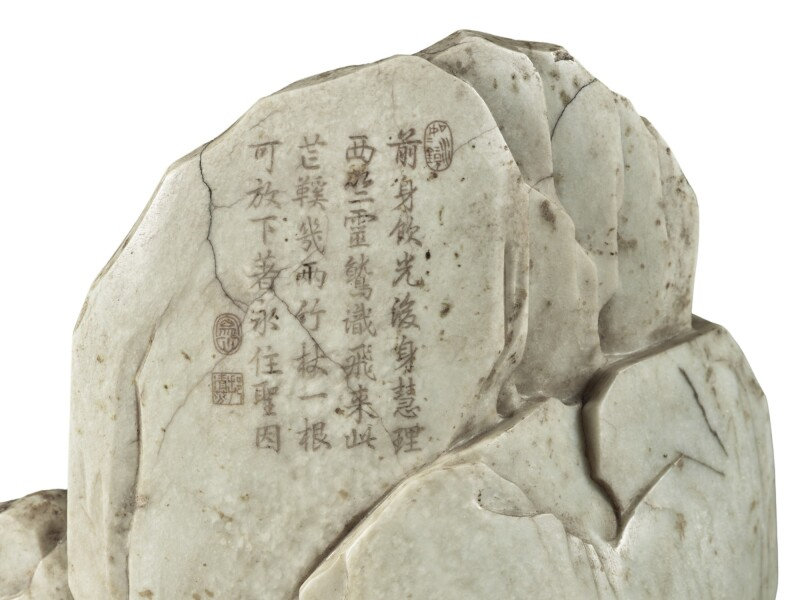 前身飲光後身慧理
西竺靈鷲識飛來此
芒鞵幾兩竹杖一根
可放下著永住聖因